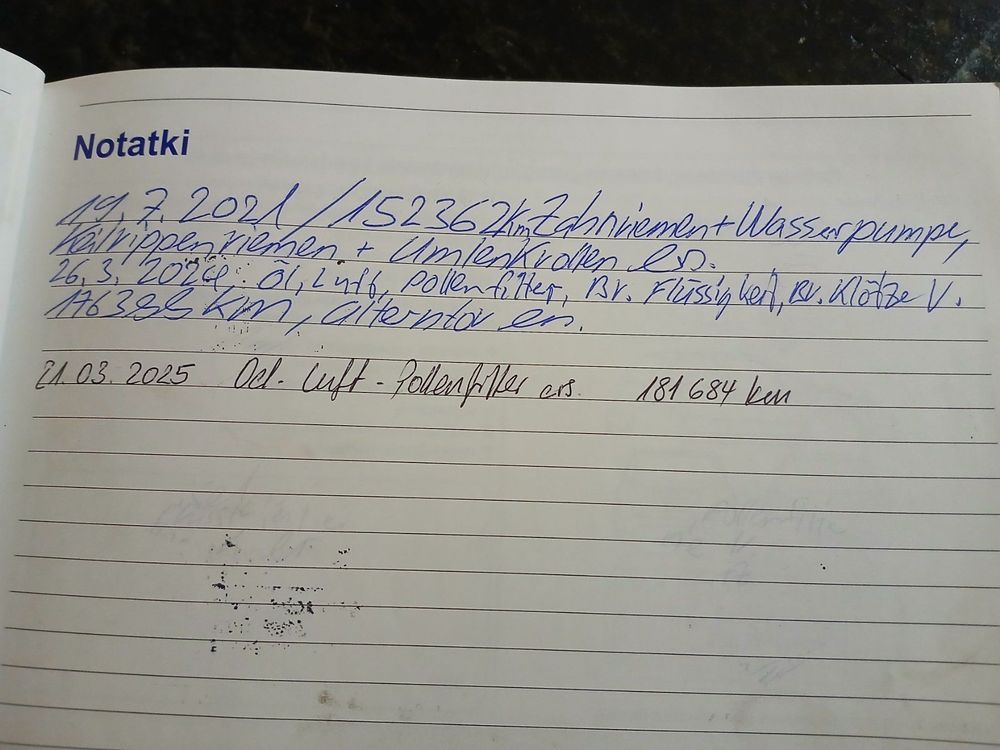 Notatki
19.7.2021 / 152362km Zahnriemen + Wasserpumpe,
Keilrippenriemen + Umlenkrollen ern.
26.3.2024, Öl, Luft, Pollenfilter, Br. Flüssigkeit, Br. Klötze V.
176388 km, alterntor ern.
21.03.2025 Oel - Luft - Pollenfilter ers. 181 684 km